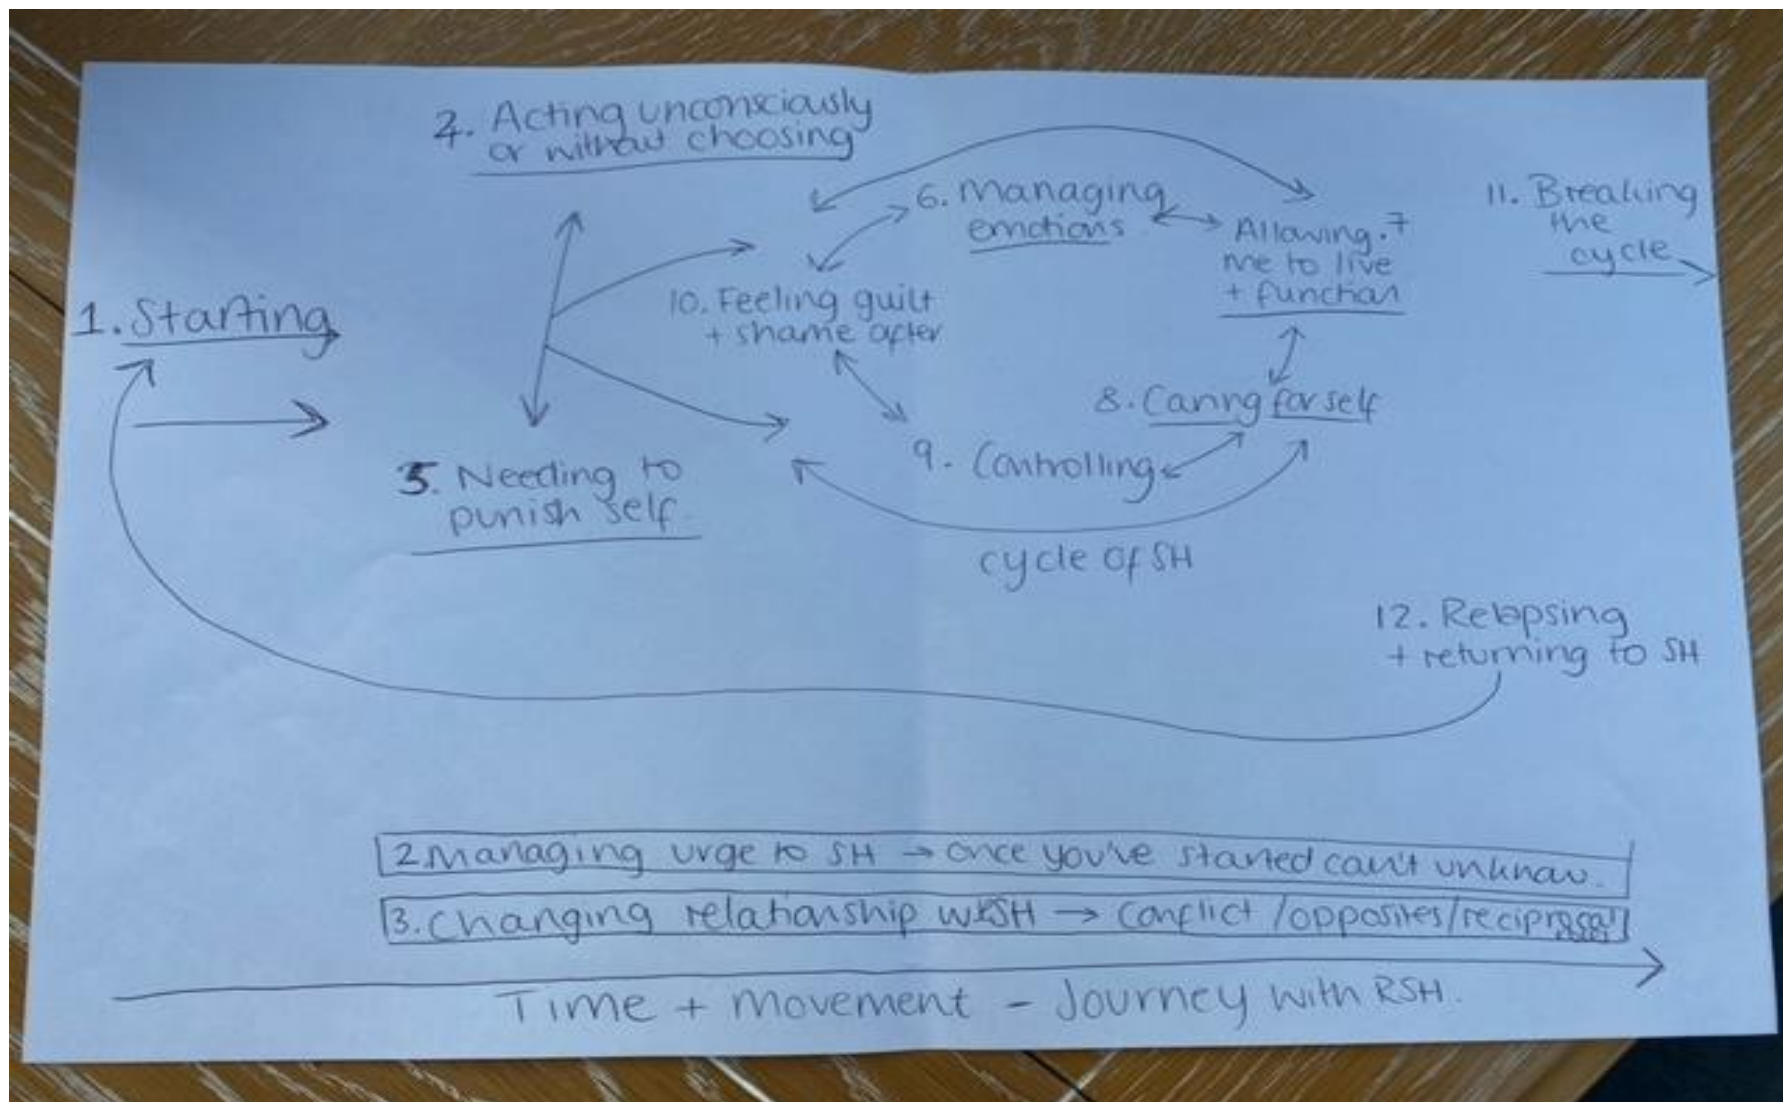 4. Acting unconsciously
or without choosing
6. Managing
emotions
11. Breaking
the
cycle
Allowing. 7
me to live
+ function
1. Starting
10. Feeling guilt
+ shame after
8. Caring for self
9. Controlling
5. Needing to
punish self.
cycle of SH
12. Relapsing
+ returning to SH
2. Managing urge to SH → once you've started can't unknow.
3. Changing relationship SH → conflict /opposites/reciprocal
Time + movement - Journey with RSH.